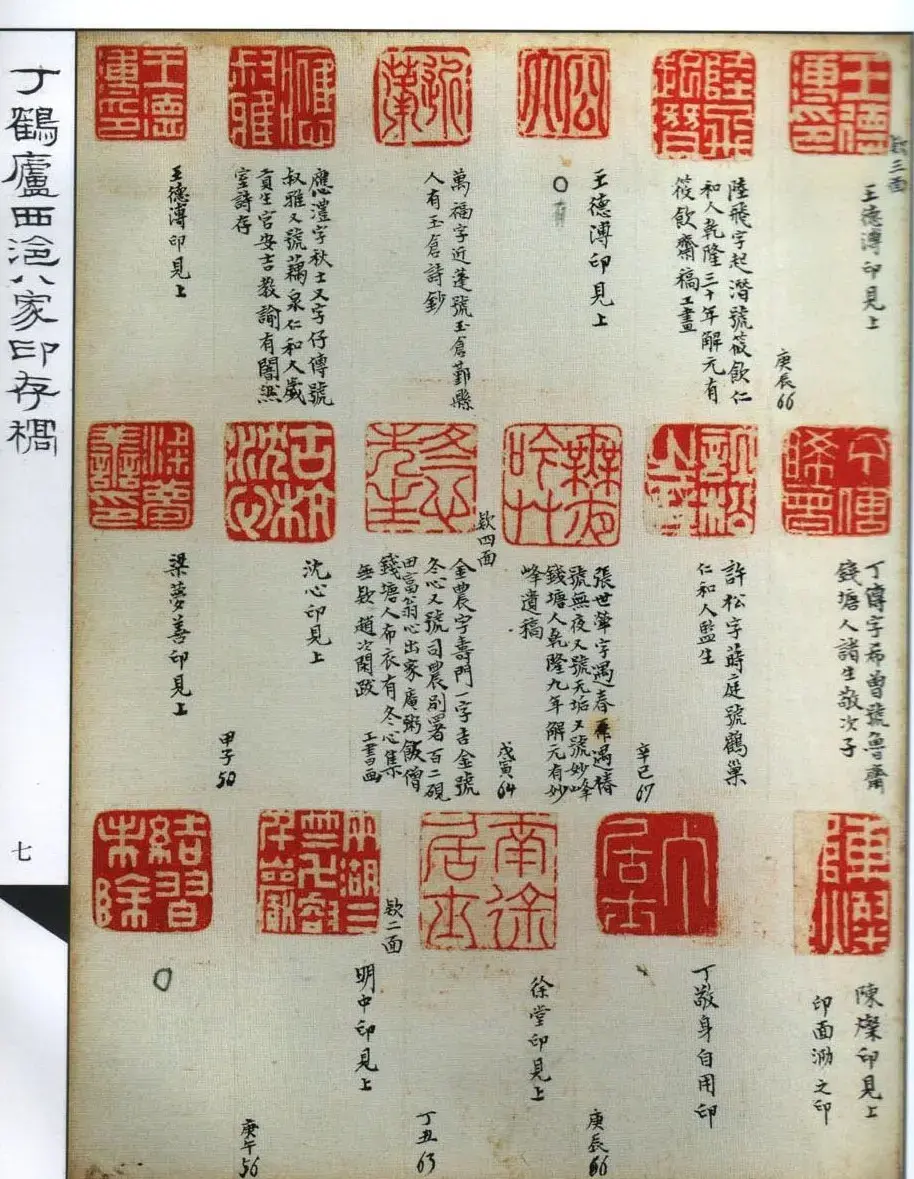 丁鶴廬西泠八家印存稿
七
王德溥印
款三面
王德溥印見上
陸飛起潛
陸飛字起潛號筱飲仁
和人乾隆三十年解元有
筱飲齋稿工畫
庚辰66
王德溥印見上
有
近蓬
萬福字近蓬號玉倉鄞縣
人有玉倉詩鈔
應澧叔雅
應澧字秋士又字仔傳號
叔雅又號藕泉仁和人歲
貢生官安吉教諭有闇然
室詩存
王德溥印
王德溥印見上
丁傳希曾
丁傳字希曾號魯齋
錢塘人諸生敬次子
許松
許松字蒔庭號鶴巢
仁和人監生
辛巳67
無夜吟廿
張世犖字遇春一作遇椿
號無夜又號无垢又號妙峰
錢塘人乾隆九年解元有妙
峰遺稿
戊寅64
冬心先生
款四面
金農字壽門一字吉金號
冬心又號司農別署百二硯
田富翁心出家庵粥飯僧
錢塘人布衣有冬心集
工書画
無款趙次閑跋
古杭沈心
沈心印見上
甲子50
梁夢善印
梁夢善印見上
陳燦
陳燦印見上
印面泐之印
居士
丁敬身自用印
庚辰66
南徐居士
徐堂印見上
丁丑63
兩湖三竺
款二面
明中印見上
庚午56
結習未除